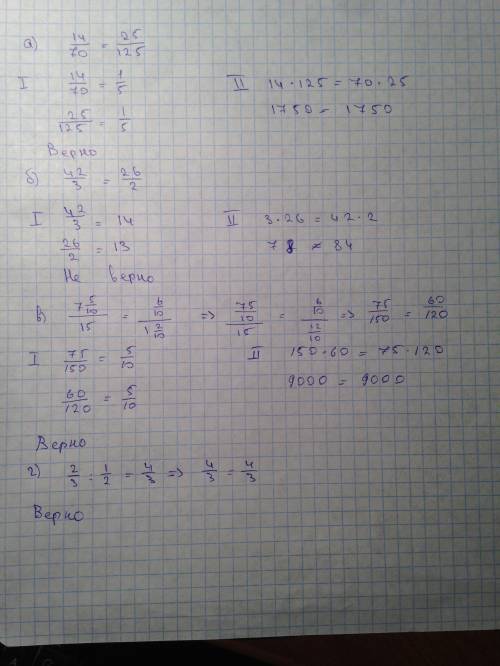 а) 14/70 = 25/125
I 14/70 = 1/5 II 14 · 125 = 70 · 25
25/125 = 1/5 1750 = 1750
Верно
б) 42/3 = 26/2
I 42/3 = 14 II 3 · 26 = 42 · 2
26/2 = 13 78 ≠ 84
Не верно
в) 7 5/10 / 15 = 6/10 / 1 2/10 => 75/10 / 15 = 6/10 / 12/10 => 75/150 = 60/120
I 75/150 = 5/10 II 150 · 60 = 75 · 120
60/120 = 5/10 9000 = 9000
Верно
г) 2/3 : 1/2 = 4/3 => 4/3 = 4/3
Верно